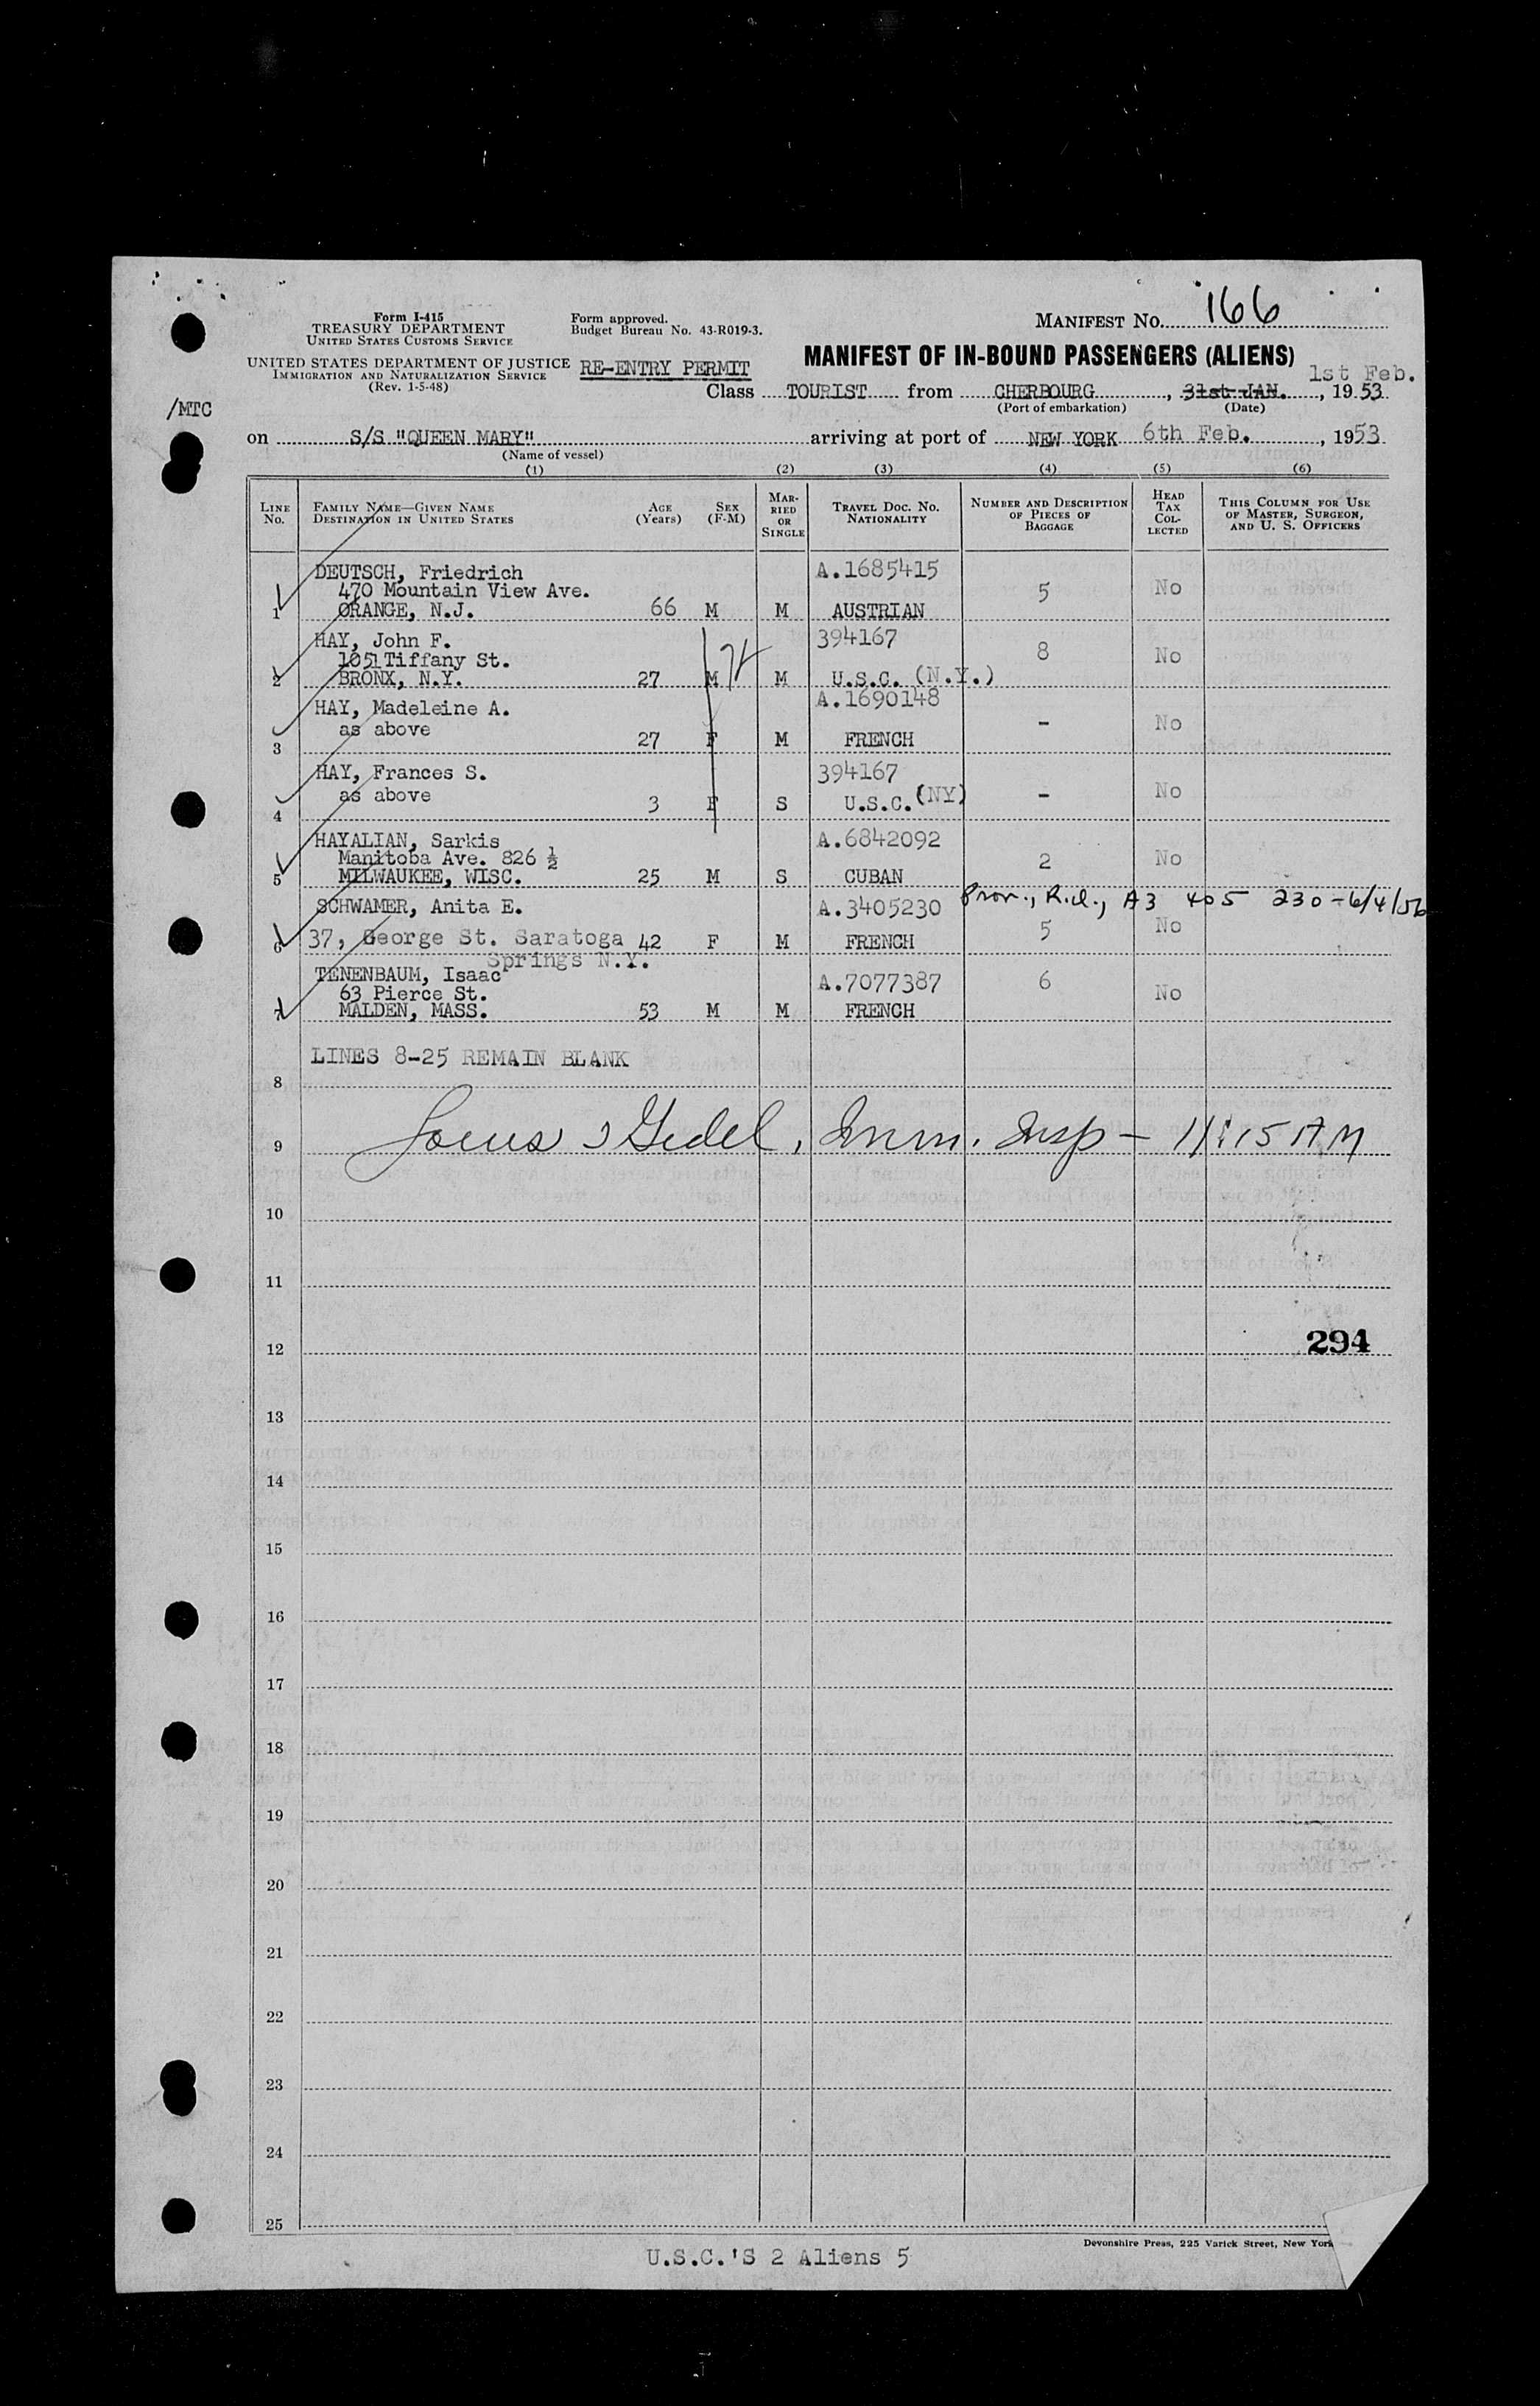 Form I-415
TREASURY DEPARTMENT
UNITED STATES CUSTOMS SERVICE
UNITED STATES DEPARTMENT OF JUSTICE
IMMIGRATION AND NATURALIZATION SERVICE
(Rev. 1-5-48)
Form approved.
Budget Bureau No. 43-R019-3.
RE-ENTRY PERMIT
MANIFEST NO. 166
MANIFEST OF IN-BOUND PASSENGERS (ALIENS)
1st Feb.
Class TOURIST from CHERBOURG, 31st JAN., 1953
(Port of embarkation) (Date)
/MTC
on S/S "QUEEN MARY" arriving at port of NEW YORK 6th Feb., 1953
(Name of vessel)
(1) (2) (3) (4) (5) (6)
LINE NO. FAMILY NAME—GIVEN NAME DESTINATION IN UNITED STATES AGE (Years) SEX (F-M) MARRIED OR SINGLE TRAVEL DOC. NO. NATIONALITY NUMBER AND DESCRIPTION OF PIECES OF BAGGAGE HEAD TAX COLLECTED THIS COLUMN FOR USE OF MASTER, SURGEON, AND U. S. OFFICERS
DEUTSCH, Friedrich A.1685415
470 Mountain View Ave. 5 No
1 ORANGE, N.J. 66 M M AUSTRIAN
HAY, John F. 394167
1051 Tiffany St. 8 No
2 BRONX, N.Y. 27 M M U.S.C. (N.Y.)
HAY, Madeleine A. A.1690148
as above - No
3 27 F M FRENCH
HAY, Frances S. 394167
as above - No
4 3 F S U.S.C. (NY)
HAYALIAN, Sarkis A.6842092
Manitoba Ave. 826 ½ 2 No
5 MILWAUKEE, WISC. 25 M S CUBAN
SCHWAMER, Anita E. A.3405230 A3 405 230 - 6/4/56
6 37, George St. Saratoga 42 F M FRENCH 5 No
Springs N.Y.
TENENBAUM, Isaac A.7077387 6
63 Pierce St. No
7 MALDEN, MASS. 53 M M FRENCH
LINES 8-25 REMAIN BLANK
8
9 Imm. Insp - 11:15 AM
10
11
294
12
13
14
15
16
17
18
19
20
21
22
23
24
25
Devonshire Press, 225 Varick Street, New York
U.S.C.'S 2 Aliens 5